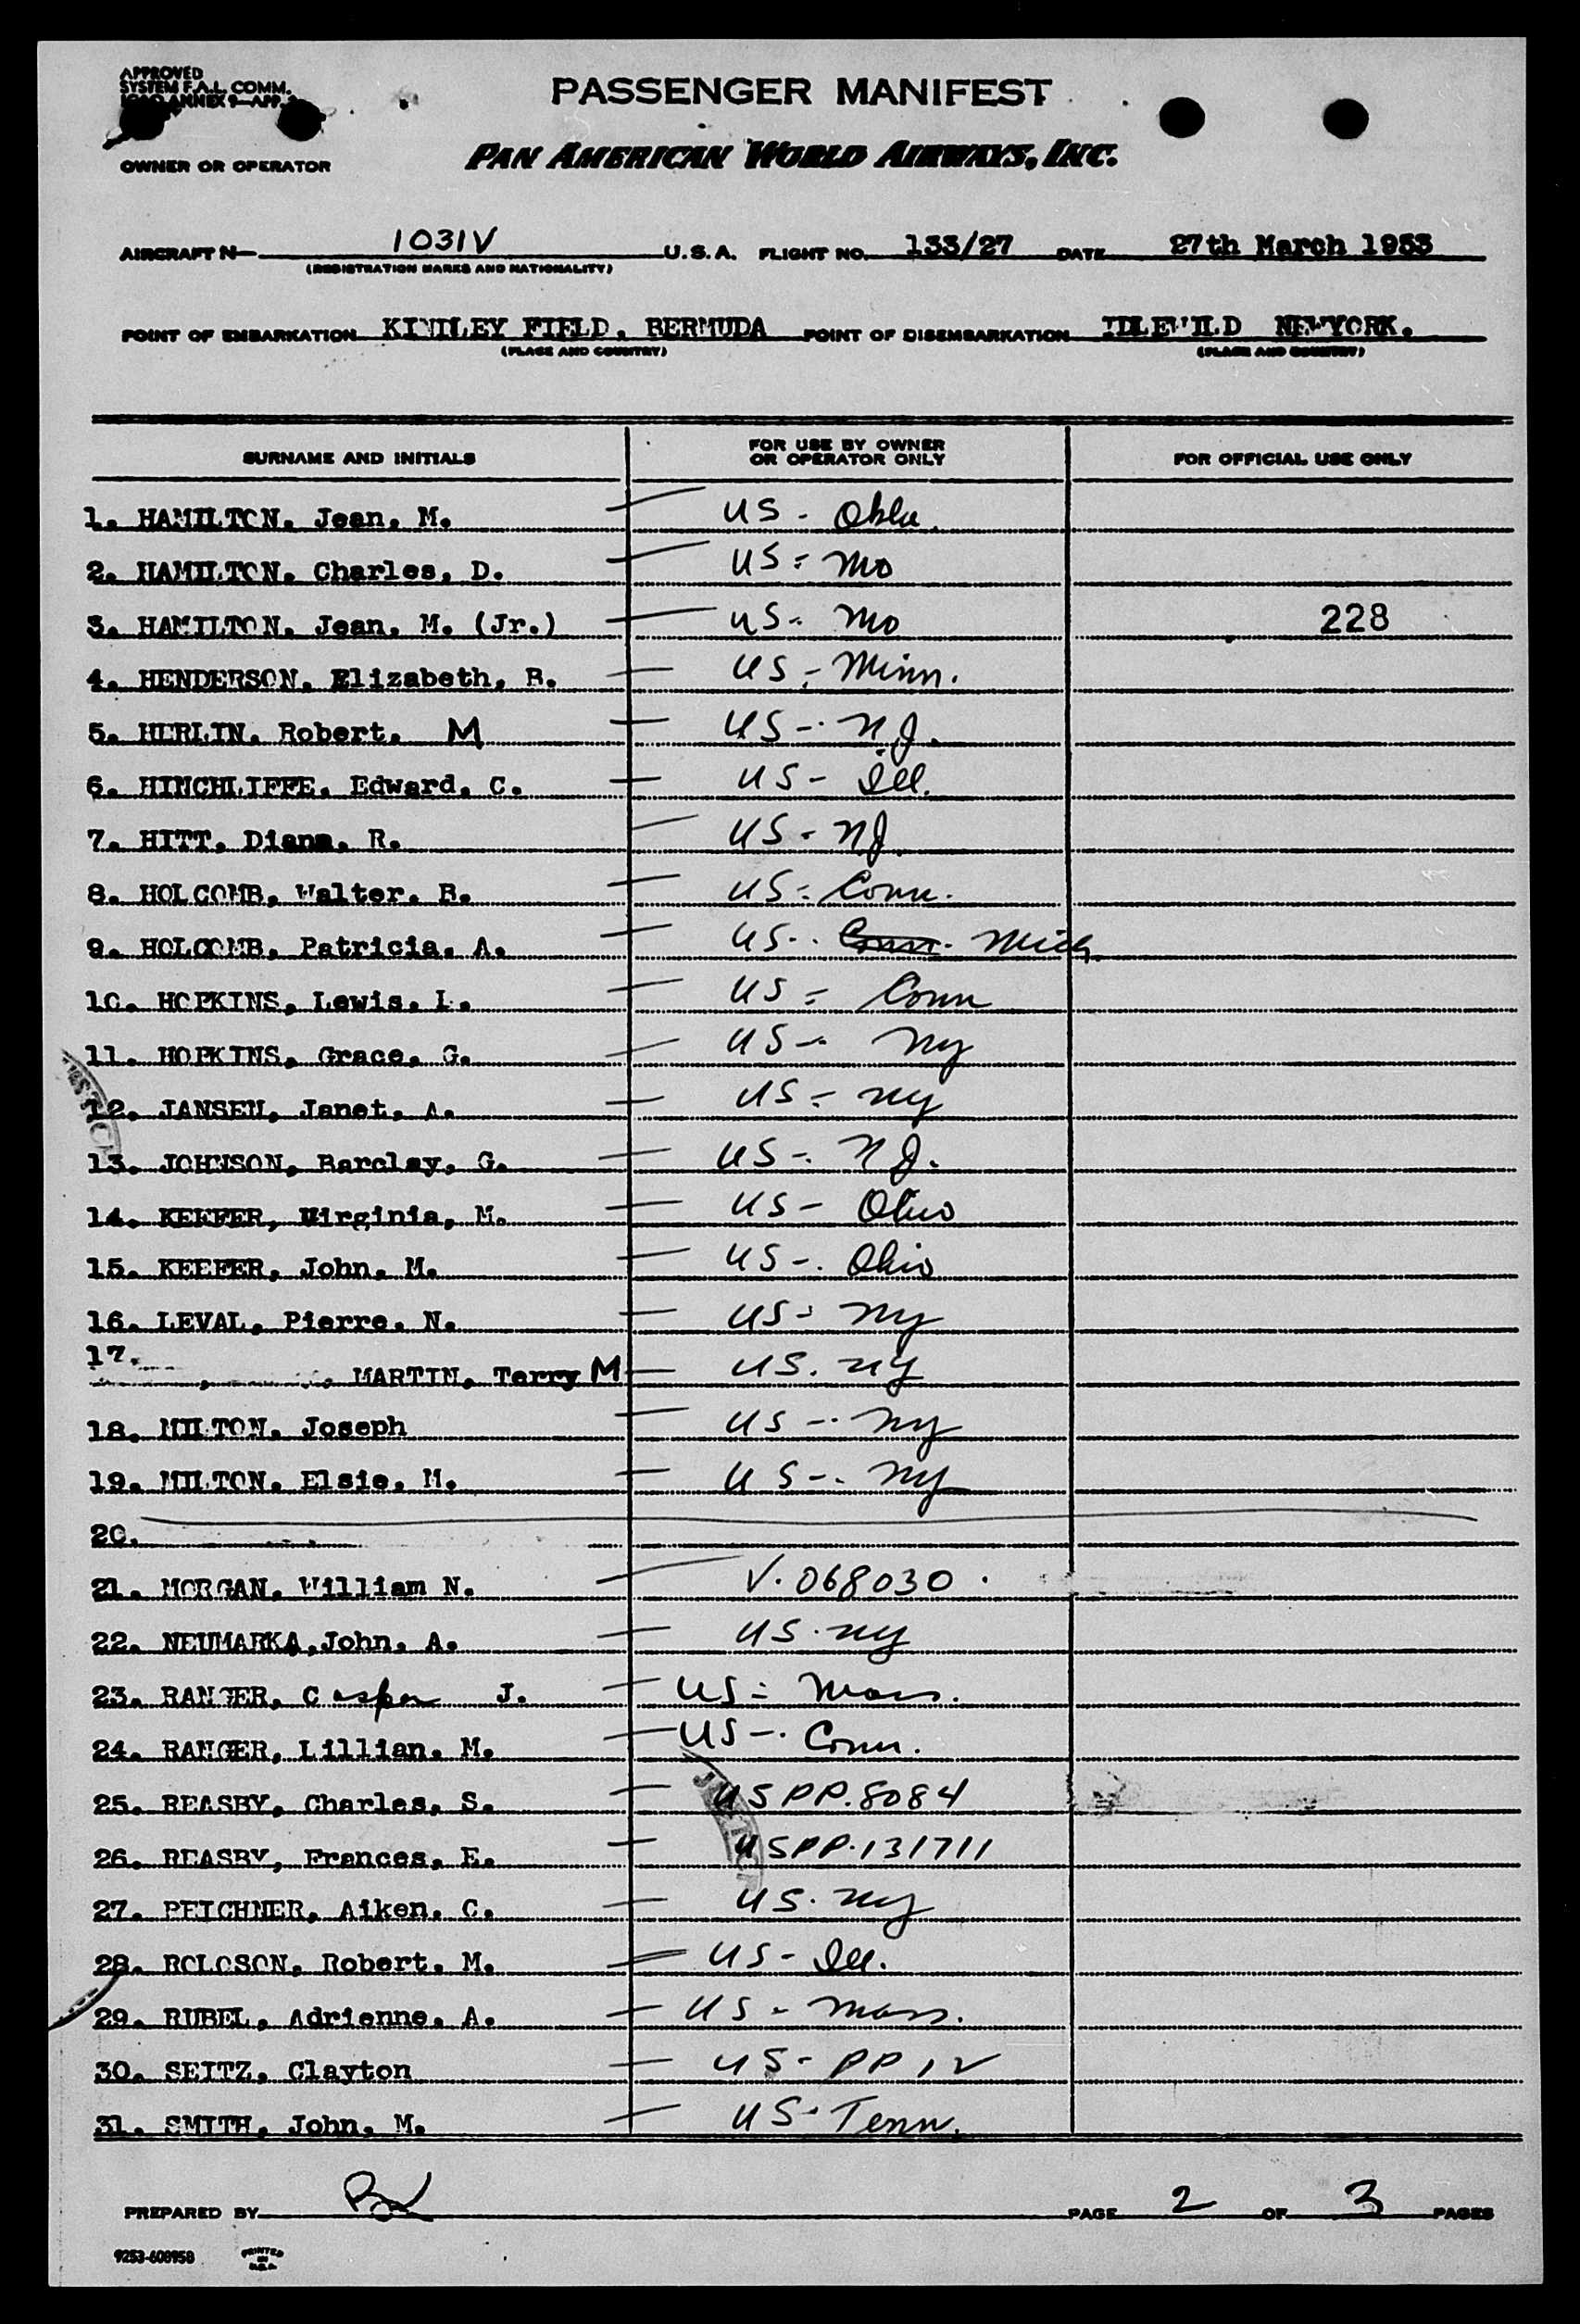 APPROVED
SYSTEM F.A.L. COMM.
ICAO ANNEX 9-APP.
PASSENGER MANIFEST
OWNER OR OPERATOR PAN AMERICAN WORLD AIRWAYS, INC.
AIRCRAFT N- 1031V U.S.A. FLIGHT NO. 133/27 DATE 27th March 1953
(REGISTRATION MARKS AND NATIONALITY)
POINT OF EMBARKATION KINDLEY FIELD, BERMUDA POINT OF DISEMBARKATION IDLEWILD NEWYORK.
(PLACE AND COUNTRY) (PLACE AND COUNTRY)
SURNAME AND INITIALS FOR USE BY OWNER OR OPERATOR ONLY FOR OFFICIAL USE ONLY
1. HAMILTON, Jean, M. US - Okla.
2. HAMILTON, Charles, D. US - Mo
3. HAMILTON, Jean, M. (Jr.) US - Mo 228
4. HENDERSON, Elizabeth, B. US - Minn.
5. HERLIN, Robert, M US - NJ.
6. HINCHLIFFE, Edward, C. US - Ill.
7. HITT, Diana, R. US - NJ
8. HOLCOMB, Walter, B. US - Conn.
9. HOLCOMB, Patricia, A. US - Conn. Mich.
10. HOPKINS, Lewis, L. US - Conn
11. HOPKINS, Grace, G. US - NY
12. JANSEN, Janet, A. US - NY
13. JOHNSON, Barclay, G. US - NJ.
14. KEEFER, Virginia, M. US - Ohio
15. KEEFER, John, M. US - Ohio
16. LEVAL, Pierre, N. US - NY
17. MARTIN, Terry M US. NY
18. MILTON, Joseph US - NY
19. MILTON, Elsie, M. US - NY
20.
21. MORGAN, William N. V. 068030
22. NEUMARKA, John, A. US. NY
23. RANGER, Casper J. US - Mass.
24. RANGER, Lillian, M. US - Conn.
25. REASBY, Charles, S. USPP. 8084
26. REASBY, Frances, E. USPP. 131711
27. REICHNER, Aiken, C. US. NY
28. ROLOSON, Robert, M. US - Ill.
29. RUBEL, Adrienne, A. US - Mass.
30. SEITZ, Clayton US - PP IV
31. SMITH, John, M. US - Tenn.
PREPARED BY PAGE 2 OF 3 PAGES
9253-600958 PRINTED IN U.S.A.